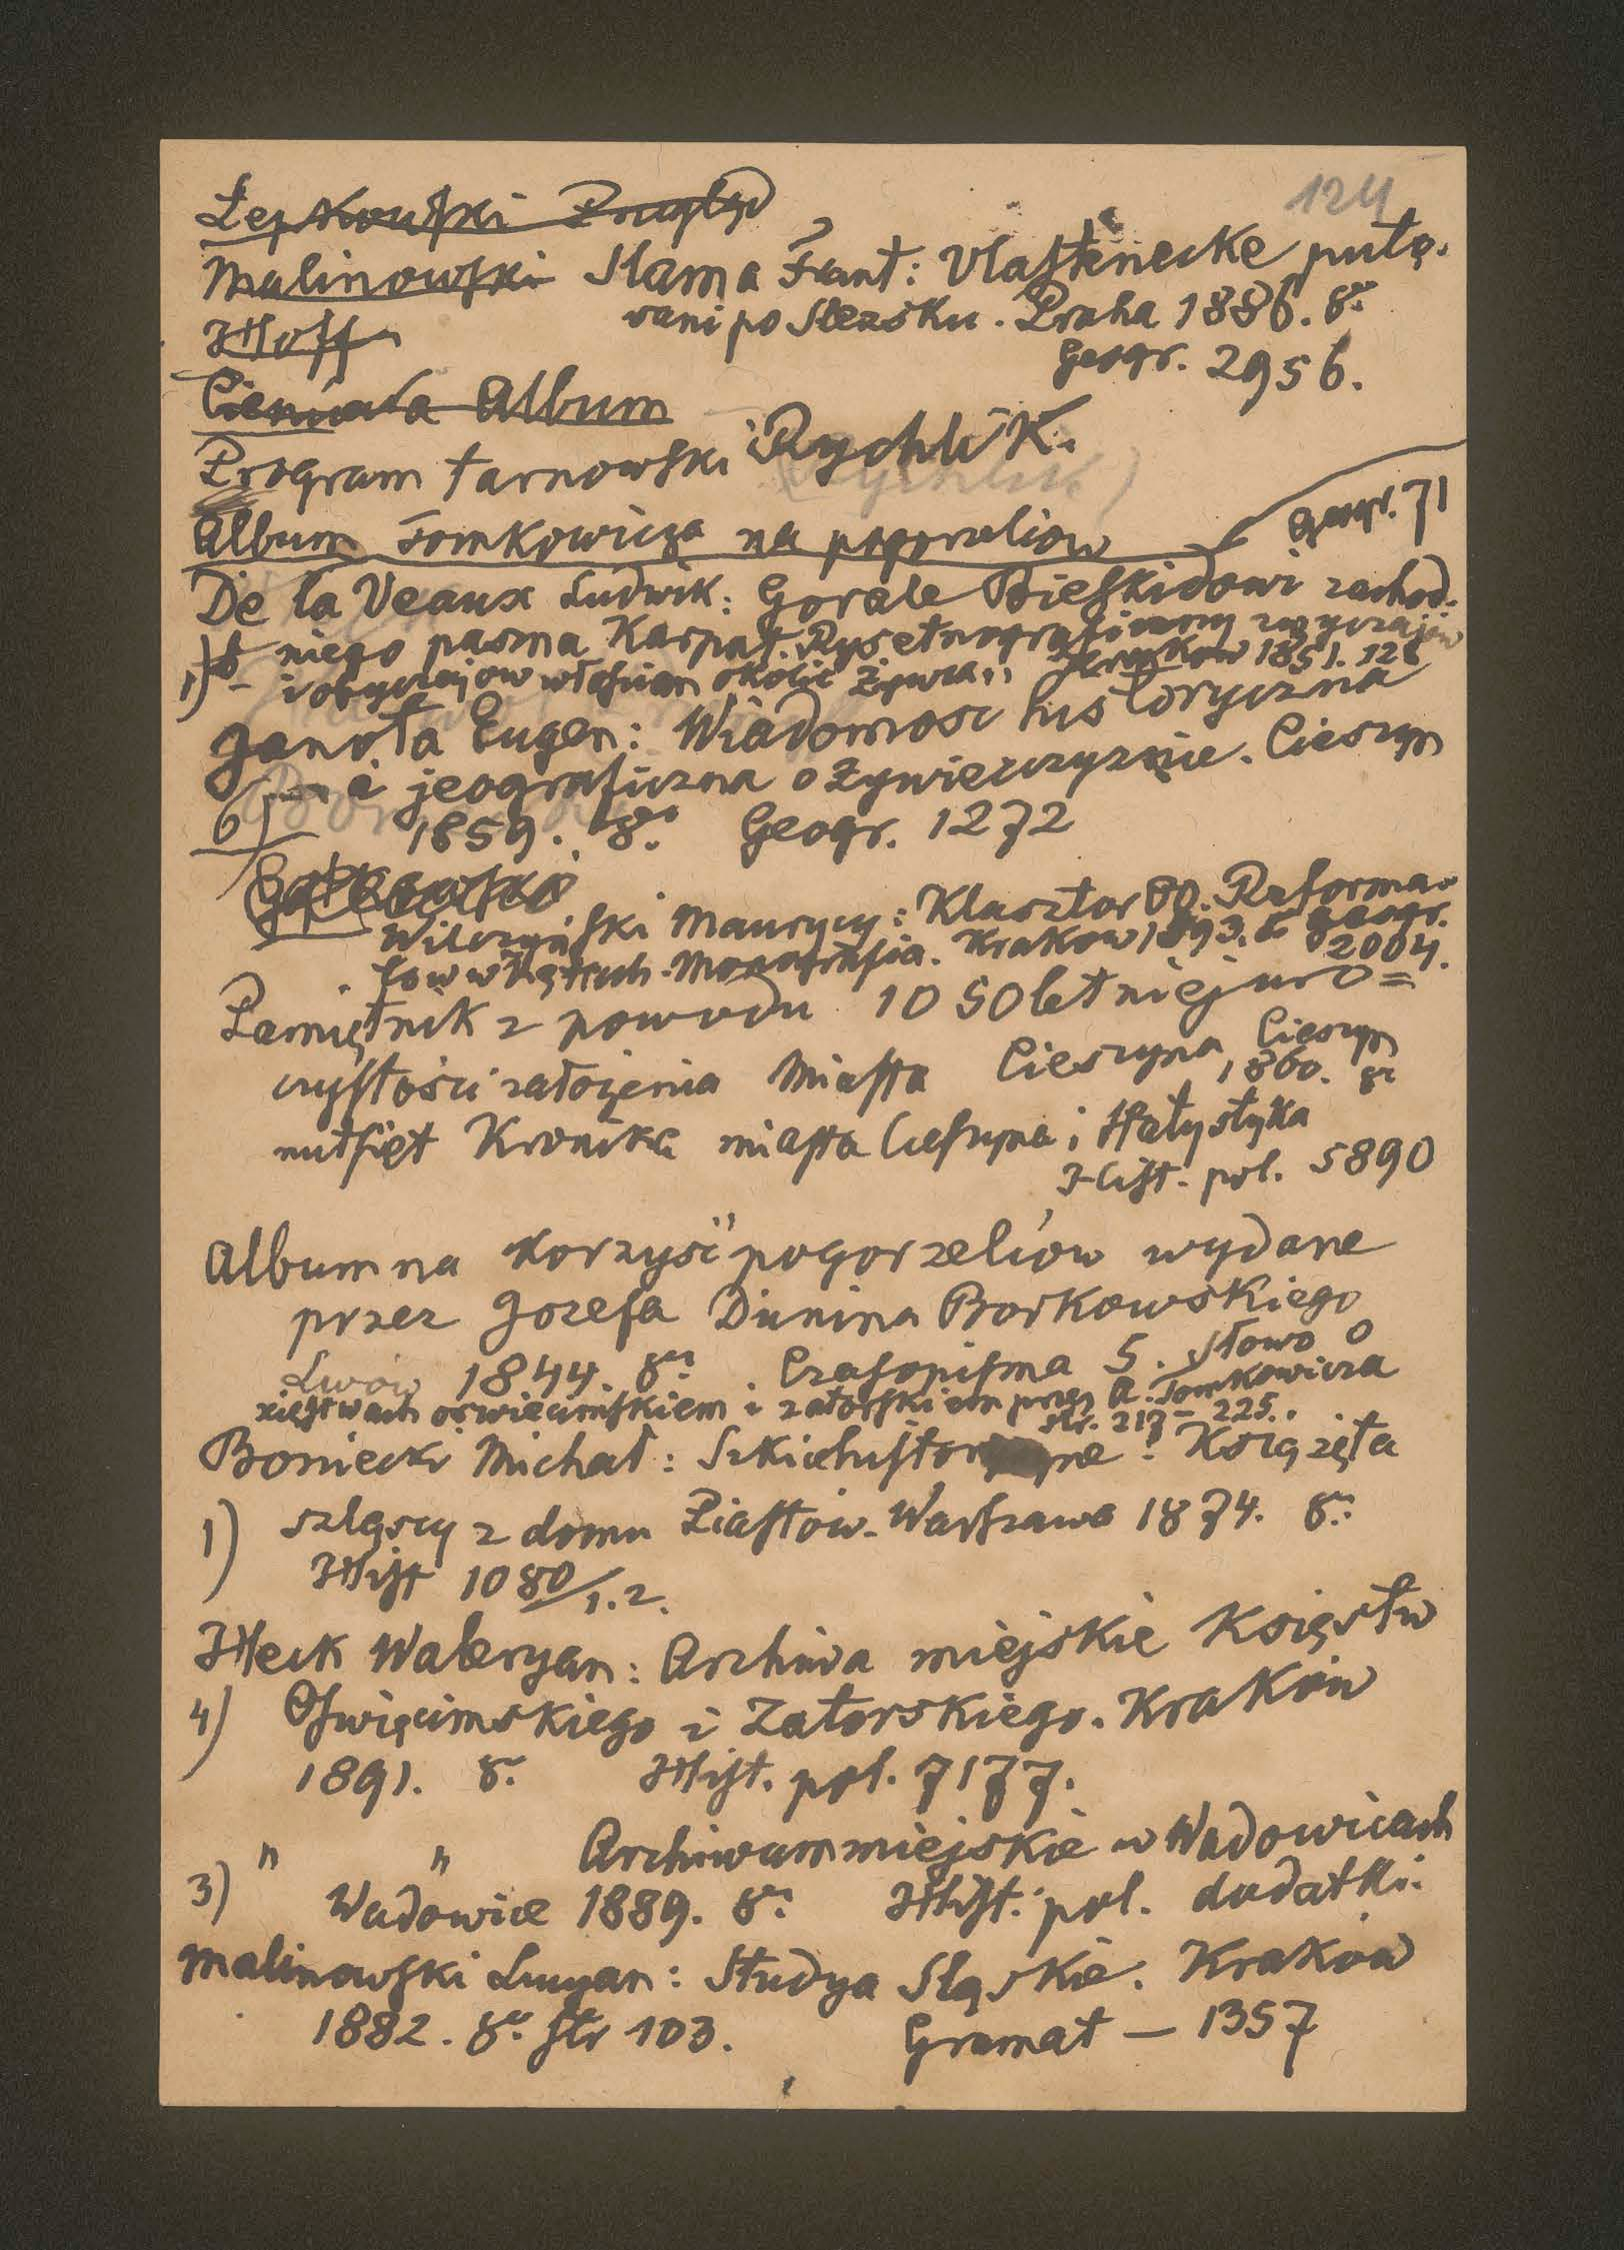 124
Łepkowski Przegląd
Malinowski Slama Frant: Vlastenecke puto-
Hoff vani po Slezsku. Praha 1886. 8°
Geogr. 2956.
Cienciała Album
Program tarnowski Rychlik.
Album Tomkowicza na pogorzelcow Geogr. 71
De la Veaux Ludwik: Gorale Bieskidowi zachod-
niego pasma Karpat. Rys etnograficzny zwyczajow
1) i obyczajow włościan okolic Żywca,, Krakow 1851. 12°
Janota Eugen: Wiadomosc historyczna
6) i jeograficzna o Żywiecczyznie. Cieszyn
1859. 8° Geogr. 1272
Wilczyński Maurycy: Klasztor OO. Reforma-
tow w Kętach. Monografia. Krakow 1893. 8° Geogr.
2004.
Pamiętnik z powodu 1050letniej uro=
czystości załozenia Miasta Cieszyna Cieszyn
1860. 8°
Kronika miasta Ciessyna i statystyka
Hist. pol. 5890
Album na korzyść pogorzelców wydane
przez Jozefa Dunina Borkowskiego
Lwów 1844. 8° Czasopisma 5. Słowo o
xięstwach oswiecimskiem i zatorskiem przez A. Tomkowicza
str. 217 – 225.
Boniecki Michał: Szkice historyczne: Książęta
1) szląscy z domu Piastów. Warszawa 1874. 8°
Hist 1080/1.2.
Heck Waleryan: Archiwa miejskie Księstw
4) Oswięcimskiego i Zatorskiego. Kraków
1891. 8° Hist. pol. 7177.
" " Archiwum miejskie w Wadowicach
3) Wadowice 1889. 8° Hist. pol. dodatki.
Malinowski Lucyan: Studya Sląskie. Kraków
1882. 8° str 103. Gramat — 1357